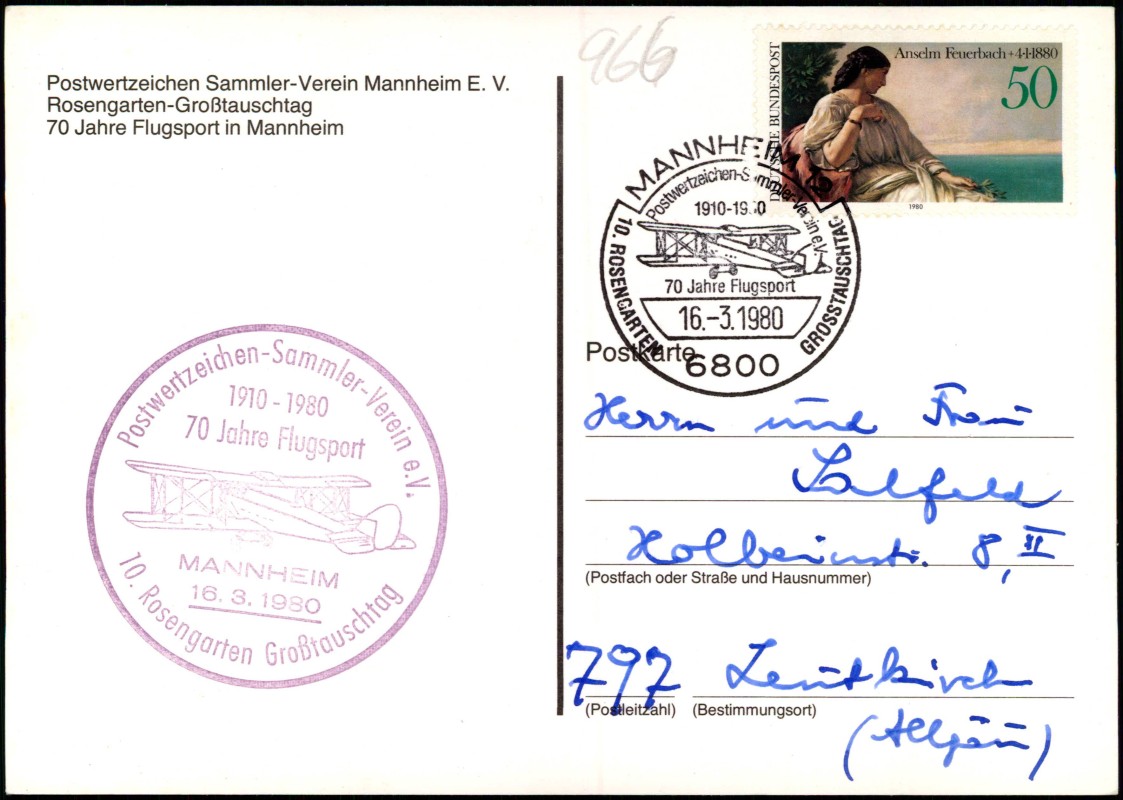 Postwertzeichen Sammler-Verein Mannheim E. V.
Rosengarten-Großtauschtag
70 Jahre Flugsport in Mannheim
966
Anselm Feuerbach + 4·1·1880
50
DEUTSCHE BUNDESPOST
1980
MANNHEIM
Postwertzeichen-Sammler-Verein e.V.
1910-1980
70 Jahre Flugsport
16.-3.1980
10. ROSENGARTEN GROSSTAUSCHTAG
6800
Postkarte
Herrn und Frau
Salfeld
Holbeinstr. 8, II
(Postfach oder Straße und Hausnummer)
797 Leutkirch
(Postleitzahl) (Bestimmungsort)
(Allgäu)
Postwertzeichen-Sammler-Verein e.V.
1910 - 1980
70 Jahre Flugsport
MANNHEIM
16. 3. 1980
10. Rosengarten Großtauschtag